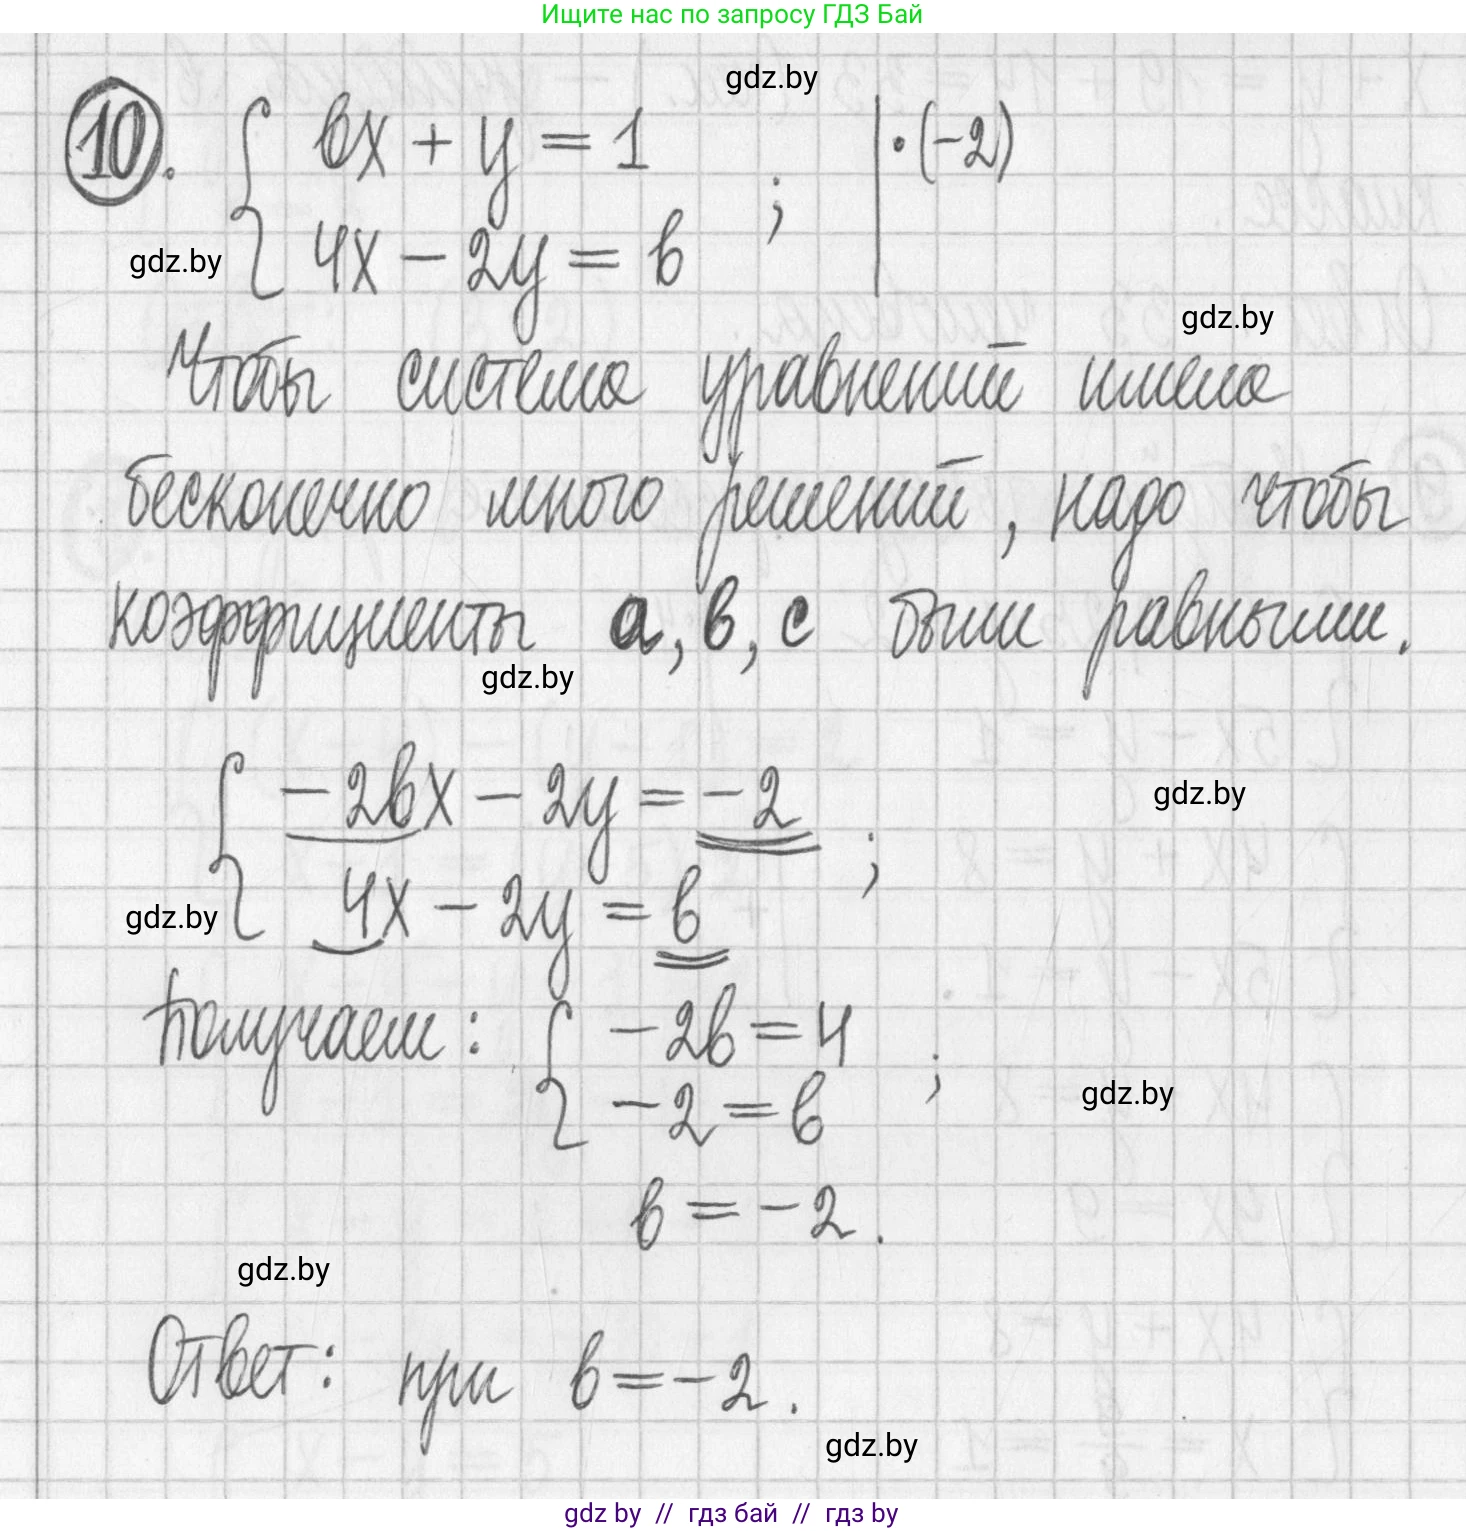 Ищите нас по запросу ГДЗ Бай
gdz.by
10. { вx + y = 1 | · (-2)
4x - 2y = в ;
gdz.by
gdz.by
Чтобы система уравнений имела
бесконечно много решений, надо чтобы
коэффициенты а, в, с были равными.
gdz.by
{ -2вx - 2y = -2
gdz.by
4x - 2y = в ;
gdz.by
Получаем: { -2в = 4
-2 = в ;
gdz.by
в = -2.
gdz.by
Ответ: при в = -2.
gdz.by
gdz by // гдз бай // гдз by